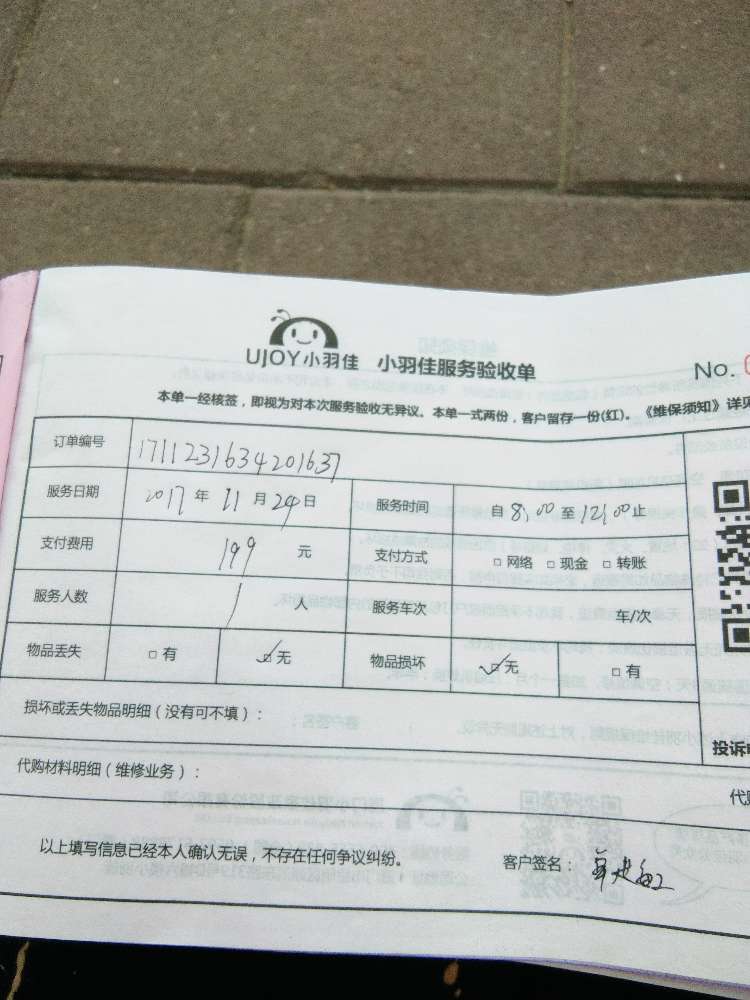 UJOY小羽佳 小羽佳服务验收单 No.
本单一经核签，即视为对本次服务验收无异议。本单一式两份，客户留存一份(红)。《维保须知》详见
订单编号 1711231634201637
服务日期 2017 年 11 月 24 日 服务时间 自 8:00 至 12:00 止
支付费用 199 元 支付方式 □ 网络 □ 现金 □ 转账
服务人数 1 人 服务车次 车/次
物品丢失 □ 有 ☑ 无 物品损坏 ☑ 无 □ 有
损坏或丢失物品明细（没有可不填）：
投诉
代购材料明细（维修业务）：
以上填写信息已经本人确认无误，不存在任何争议纠纷。 客户签名：